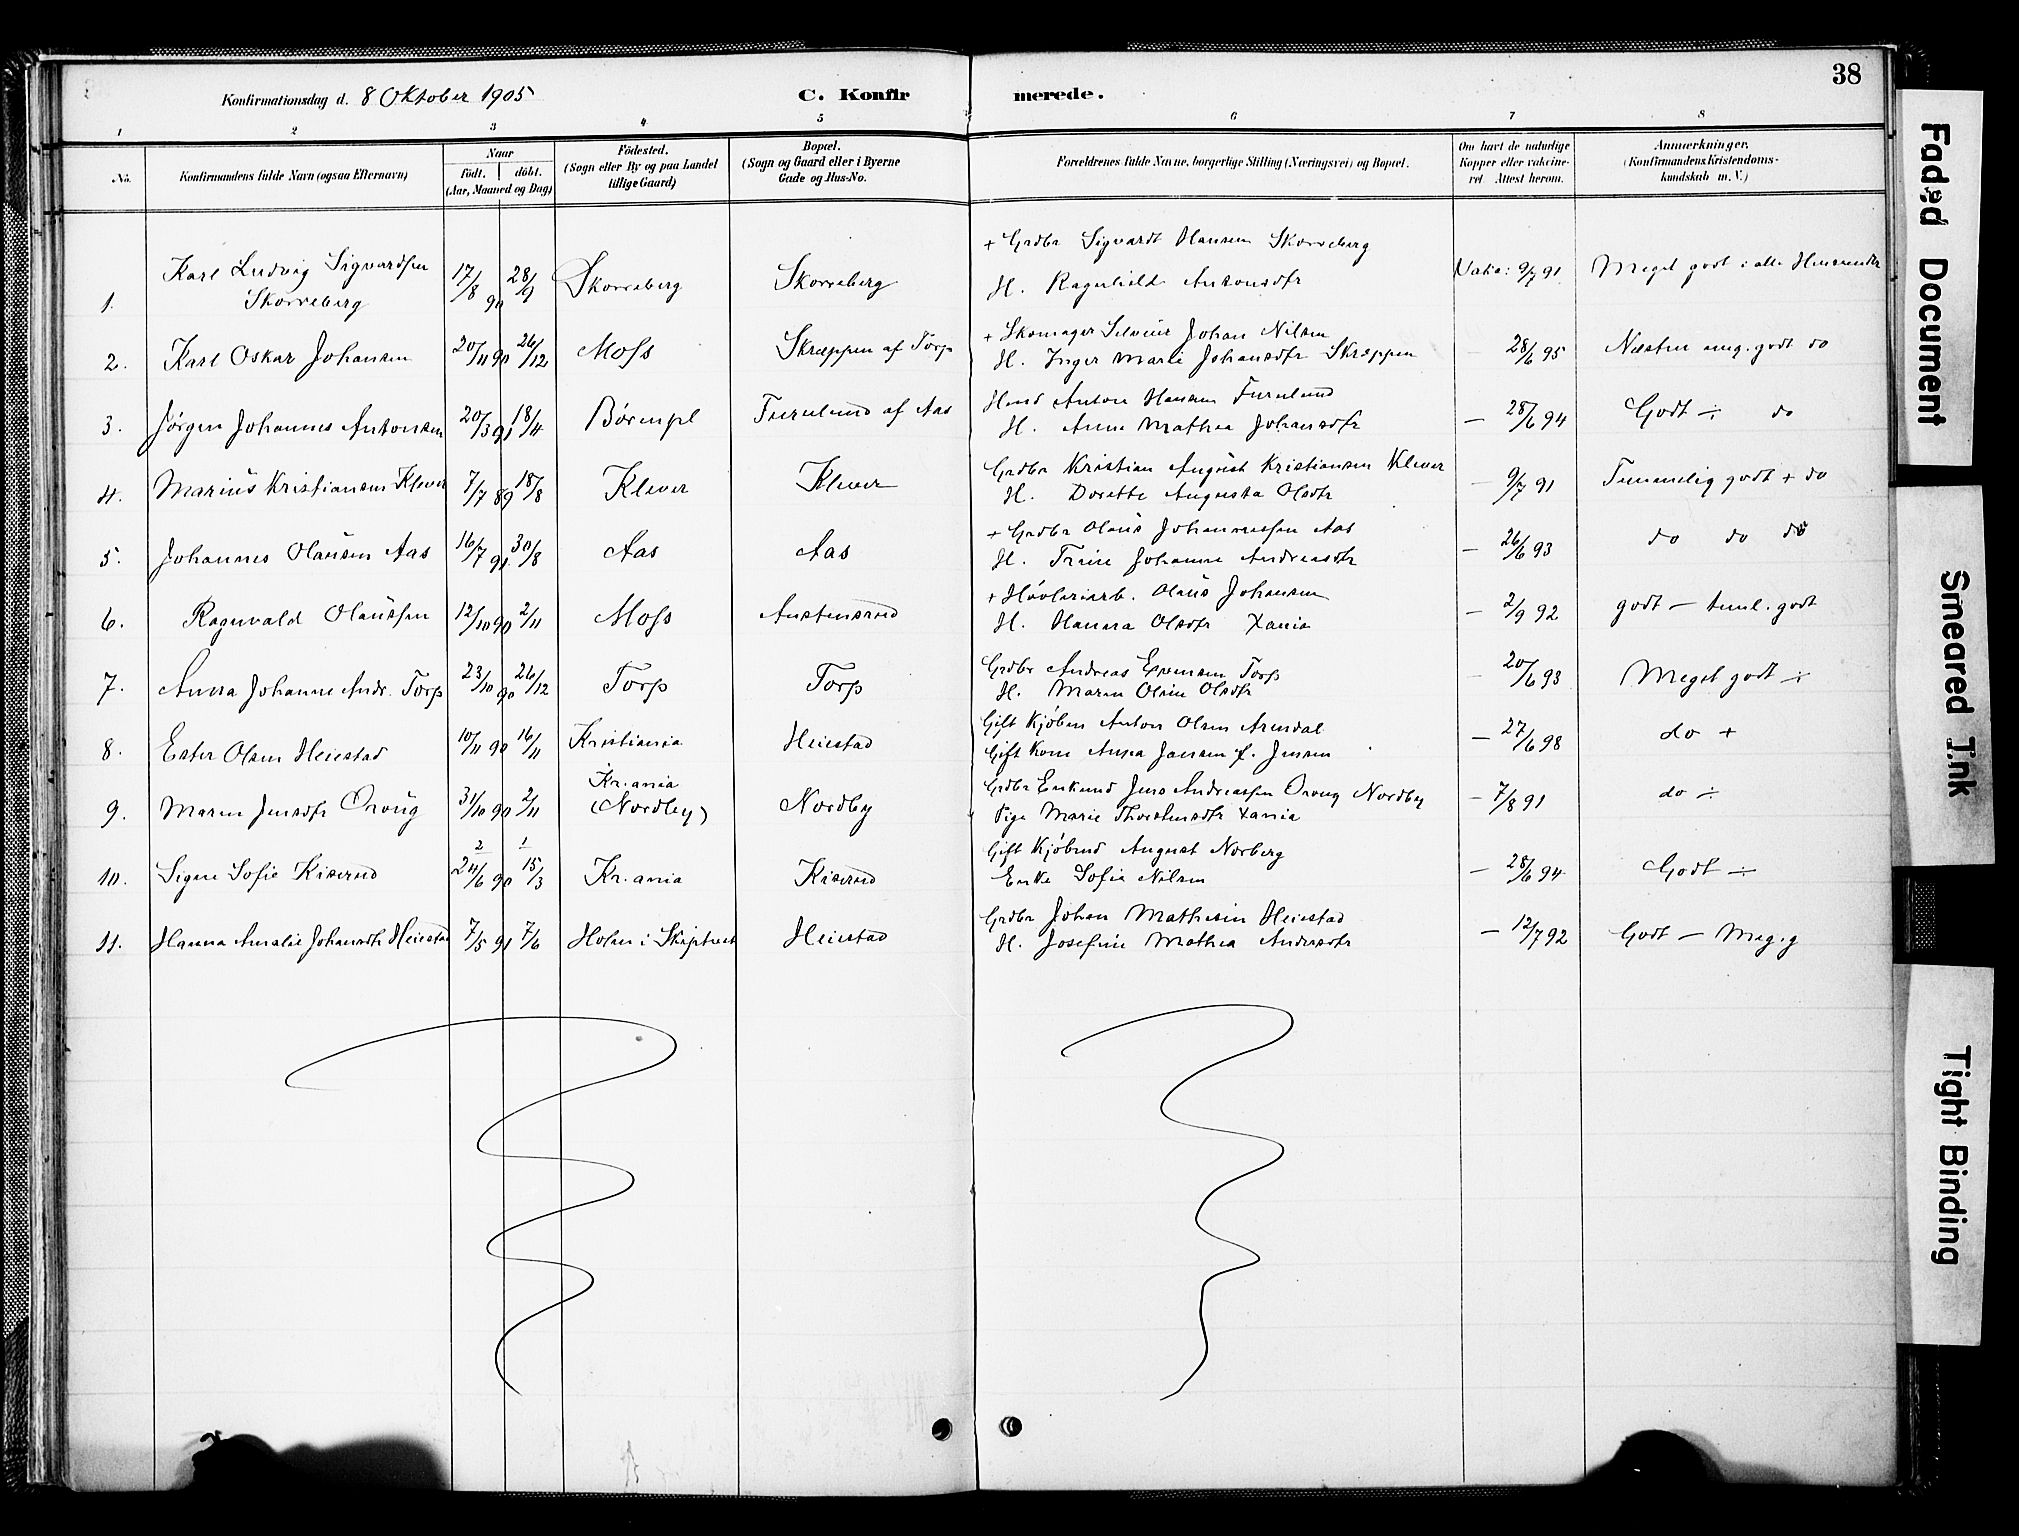 38
Konfirmationsdag d. 8 Oktober 1905 C. Konfirmerede.
1 2 3 4 5 6 7 8
No. Konfirmandens fulde Navn (ogsaa Efternavn) Naar født. døbt. (Aar, Maaned og Dag) Fødested. (Sogn eller By og paa Landet tillige Gaard) Bopæl. (Sogn og Gaard eller i Byerne Gade og Hus-No. Forældrenes fulde Navne, borgerlige Stilling (Næringsvei) og Bopæl. Om havt de naturlige Kopper eller vakcineret Attest herom. Anmærkninger. (Konfirmandens Kristendomskundskab m. V.)
1. Karl Ludvig Sigvardsen Skorreberg 17/8 90 28/9 Skorreberg Skorreberg + Grdbr Sigvardt Hansen Skorreberg
H. Ragnhild Antonsdtr 9/7 91 Meget godt i alle
2. Karl Oskar Johansen 20/11 90 26/12 Moss Skræppen af Torp + Skomager Johan Nilsen
H. Inger Marie Johansdtr Skræppen - 28/6 95 Næsten meg. godt do
3. Jørgen Johannes Antonsen 20/3 91 18/4 Furulund af Aas Anton Hansen Furulund
H. Anne Mathea Johansdtr - 28/6 94 Godt ÷ do
4. Marius Kristiansen Klever 7/7 89 18/8 Klever Klever Grdbr Kristian August Kristiansen Klever
H. Dorette Augusta Olsdtr - 9/7 91 Temmelig godt + do
5. Johannes Olausen Aas 16/7 91 30/8 Aas Aas + Grdbr Olaus Johannessen Aas
H. Trine Johanne Andreasdtr - 26/6 93 do do do
6. Ragnvald Olaussen 12/10 90 2/11 Moss Austensrud + Høvleriarb. Olaus Johansen
H. Hanna Olsdtr Xania - 2/9 92 godt - teml. godt
7. Anna Johanne Andr. Torp 23/10 90 26/12 Torp Torp Grdbr Andreas Evensen Torp
H. Maren Oline Olsdtr - 20/6 93 Meget godt ÷
8. Ester Olsen Heiestad 10/11 90 16/11 Kristiania Heiestad Gift Kjøbm Anton Olsen Arendal
Gift Kone Anna Jansen f. Jensen - 27/6 98 do +
9. Maren Jensdtr Oroug 31/10 90 2/11 Kr.ania (Nordby) Nordby Grdbr Enkemd Jens Andreassen Oroug Nordby
Pige Marie Thorstensdtr Xania - 7/8 91 do ÷
10. Signe Sofie Kiserud 24/6 90 15/3 Kr.ania Kiserud Gift Kjøbmd August Norberg
Enke Sofie Nilsen - 28/6 94 Godt ÷
11. Hanna Amalie Johansdtr Heiestad 7/5 91 7/6 Holen i Skiptvet Heiestad Grdbr Johan Mathisen Heiestad
H. Josefine Mathea Andersdtr - 12/7 92 Godt - Meg. g
Faded Document
Smeared Ink
Tight Binding